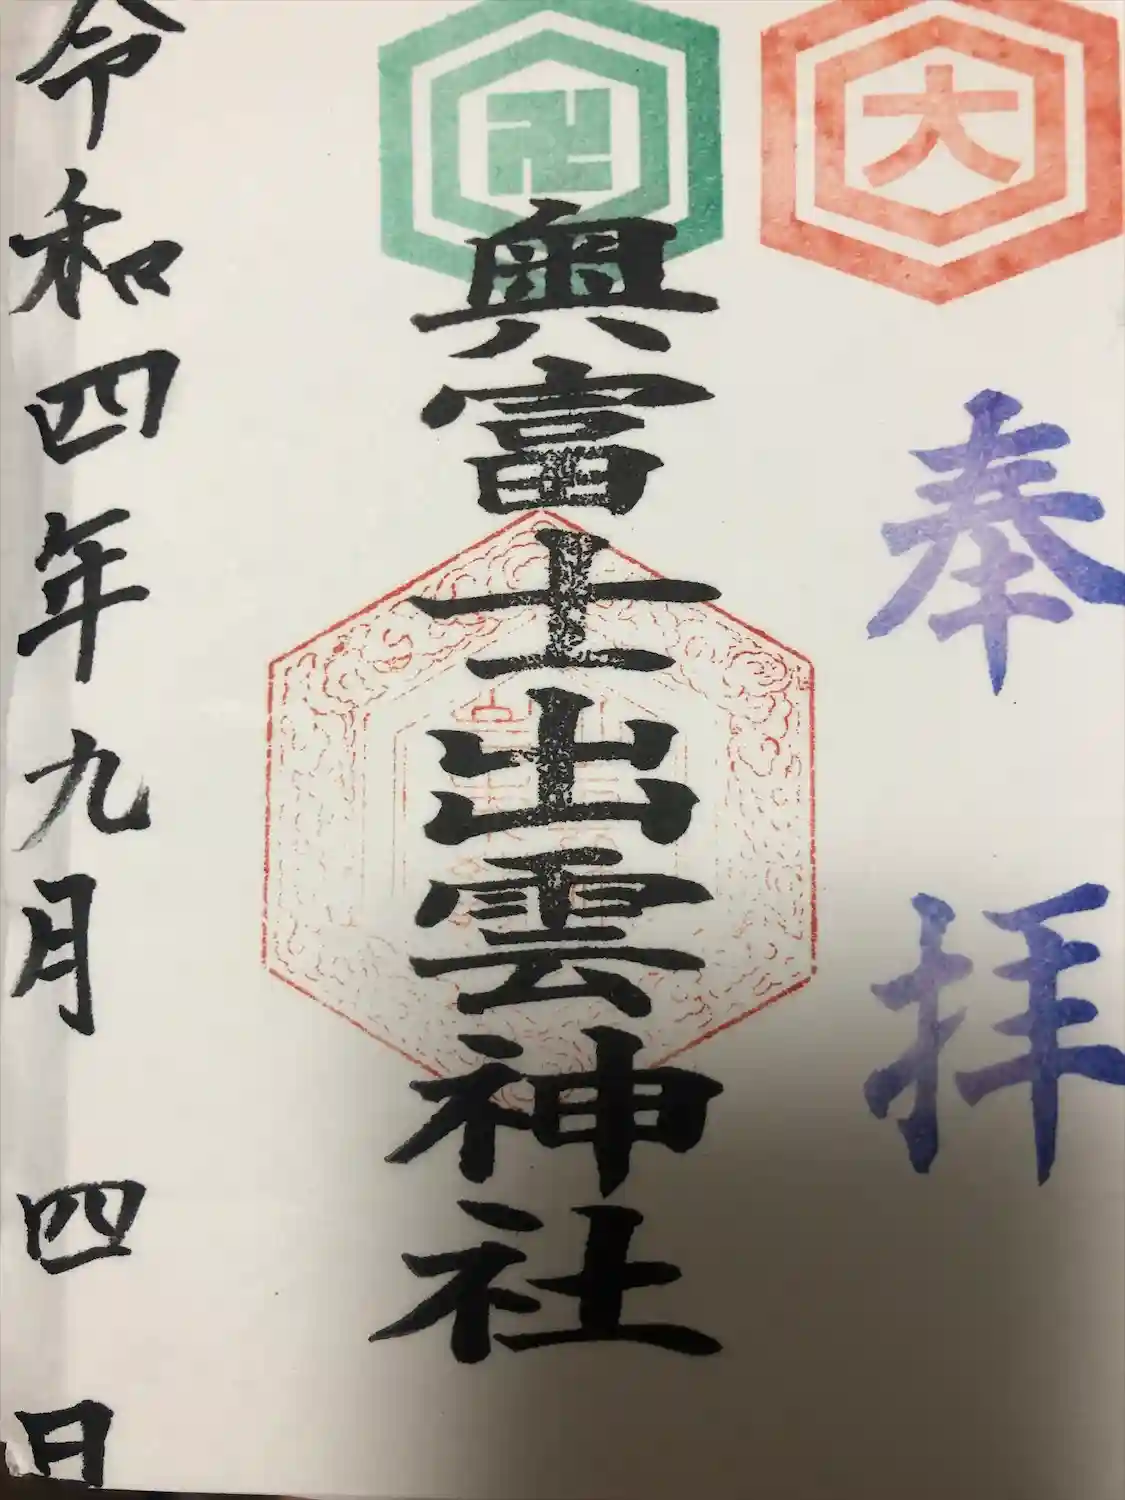 大
奉拝
卍
奥富士出雲神社
令和四年九月四日